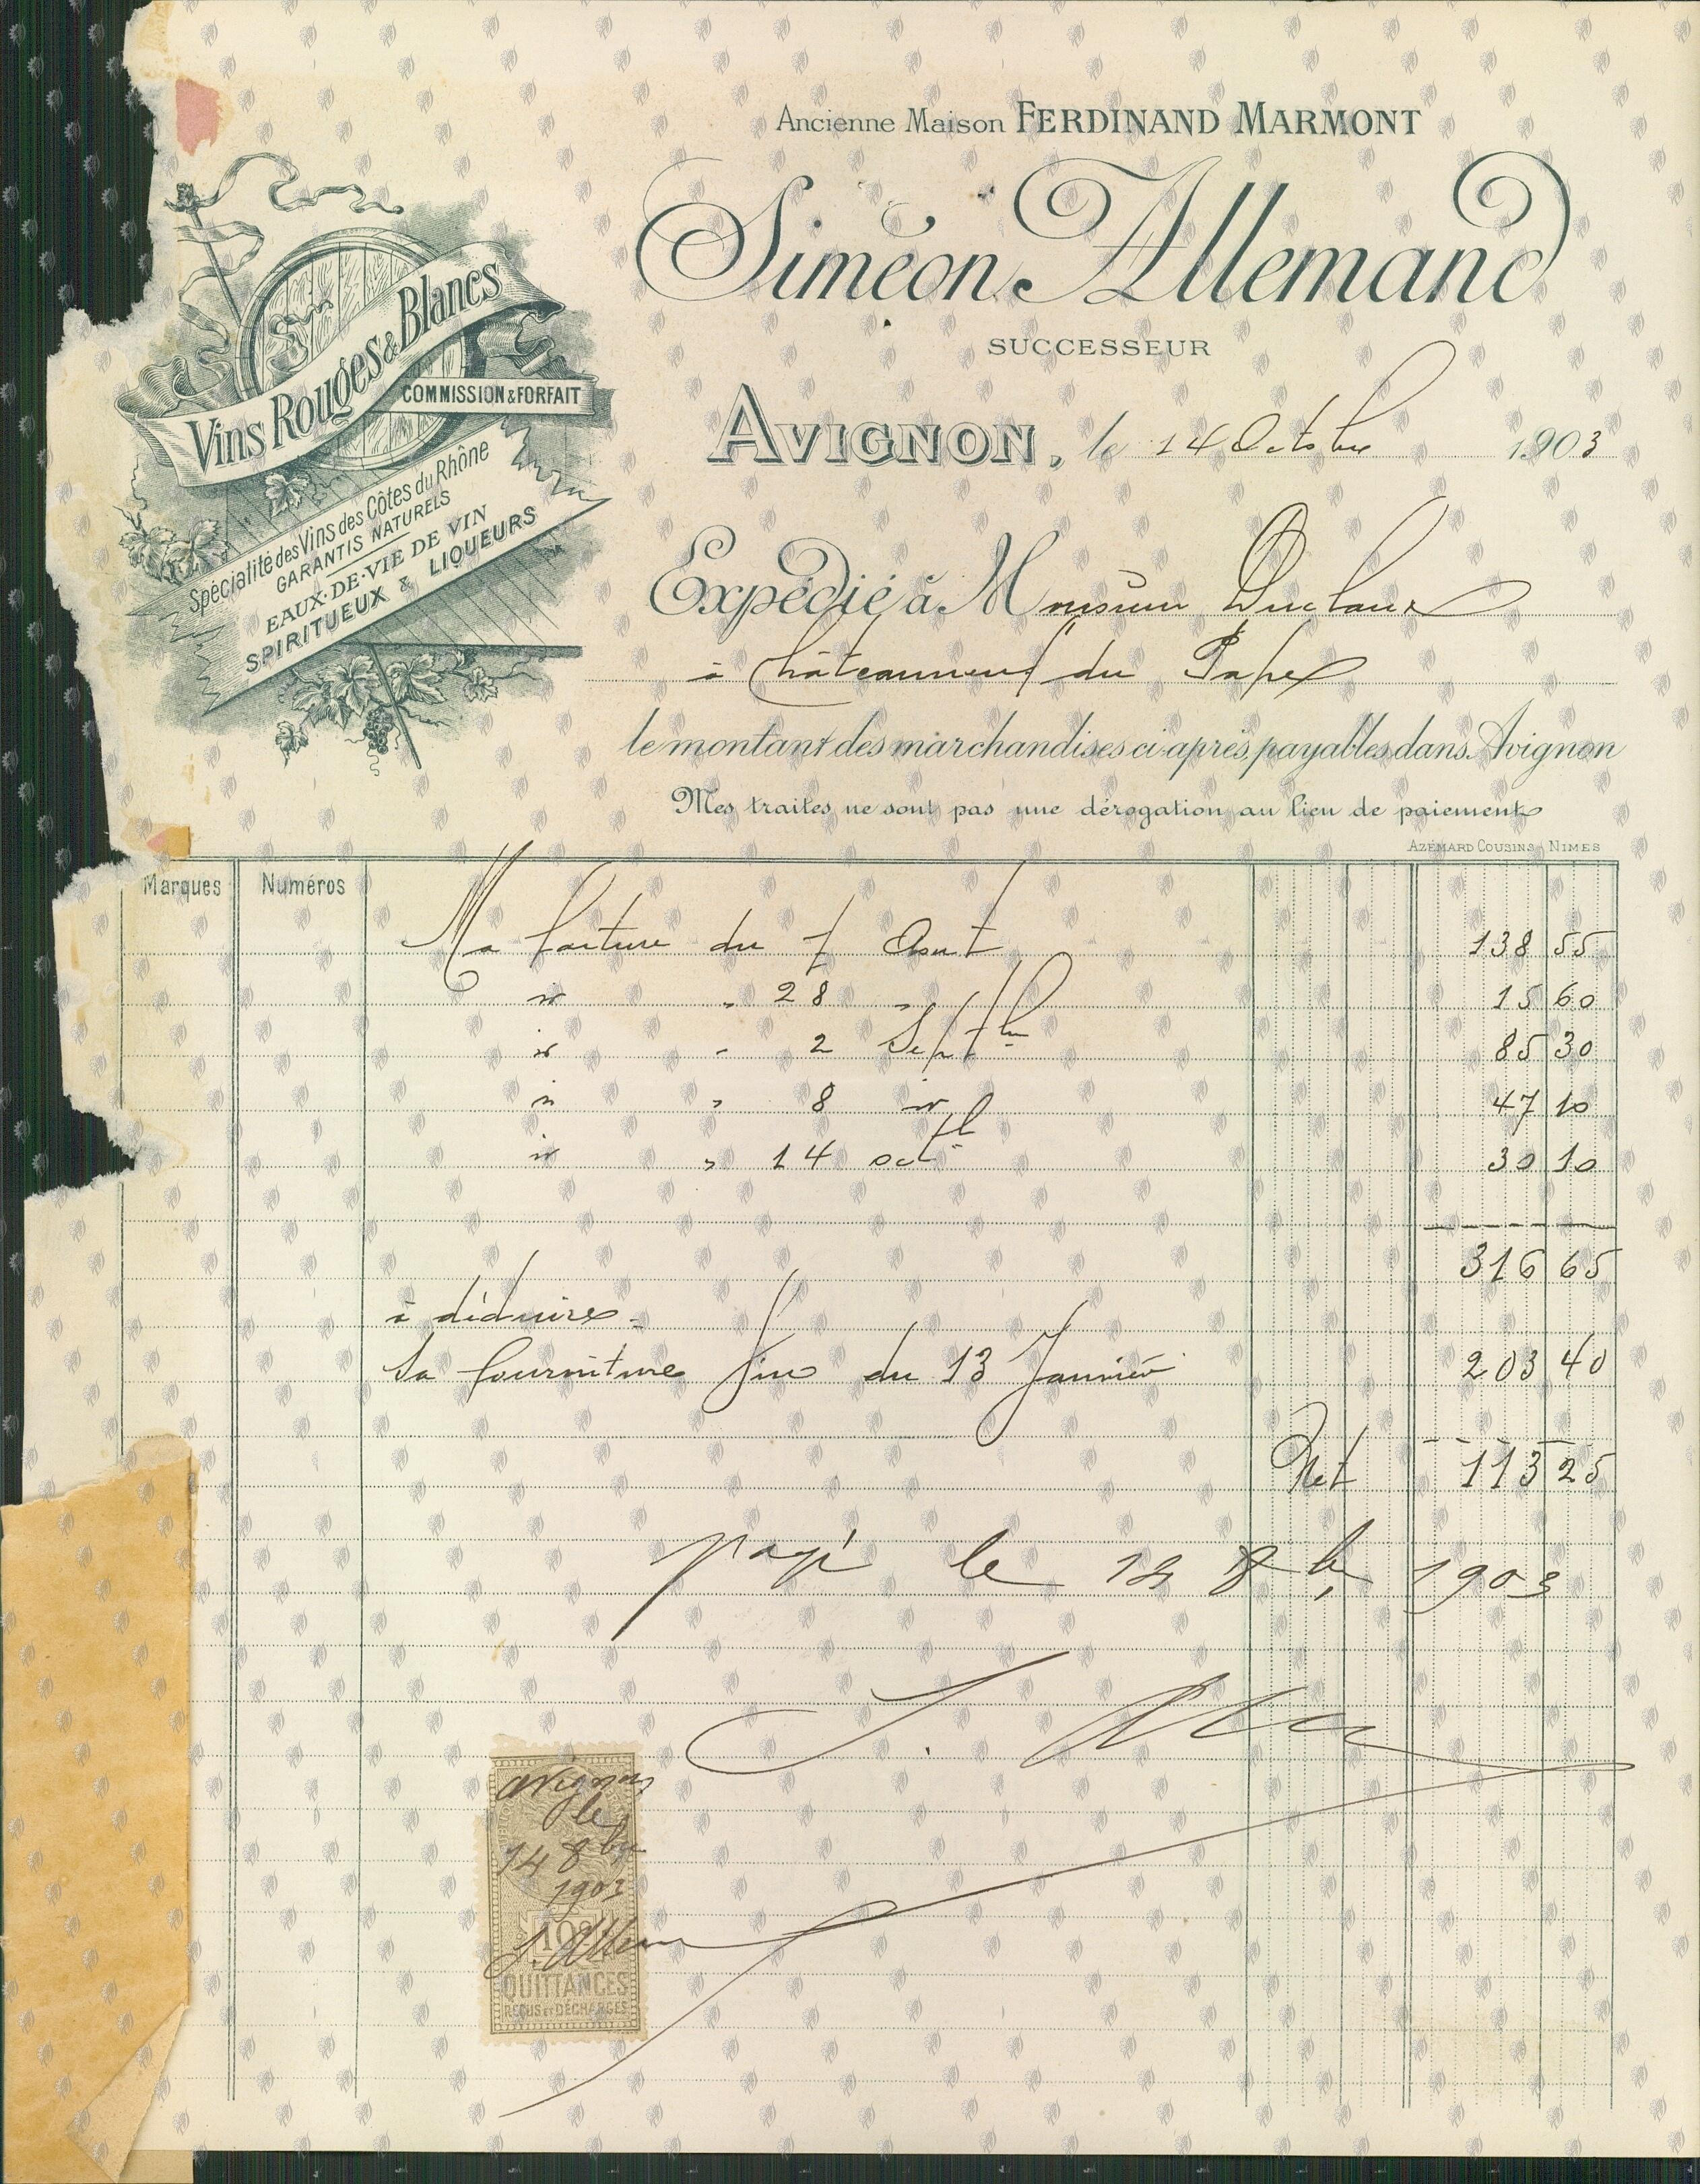 Ancienne Maison FERDINAND MARMONT
Siméon Allemand
SUCCESSEUR
Vins Rouges & Blancs
COMMISSION & FORFAIT
Spécialité des Vins des Côtes du Rhône
GARANTIS NATURELS
EAUX-DE-VIE DE VIN
SPIRITUEUX & LIQUEURS
AVIGNON, le 14 Octobre 1903
Expédié à Monsieur Duclaux
à Châteauneuf du Pape
le montant des marchandises ci-après, payables dans Avignon
Mes traites ne sont pas une dérogation au lieu de paiement
AZÉMARD COUSINS NIMES
Marques Numéros
Ma facture du 7 Aout 138 55
" " 28 " 15 60
" " 2 Septbre 85 30
" " 8 " 47 10
" " 14 oct 30 10
316 65
à déduire
Sa fourniture du 13 Janvier 203 40
Net 113 25
payé le 14 8bre 1903
S. Allemand
Avignon
le
14 8bre
1903
10c
S. Allemand
QUITTANCES
REÇUS ET DÉCHARGES